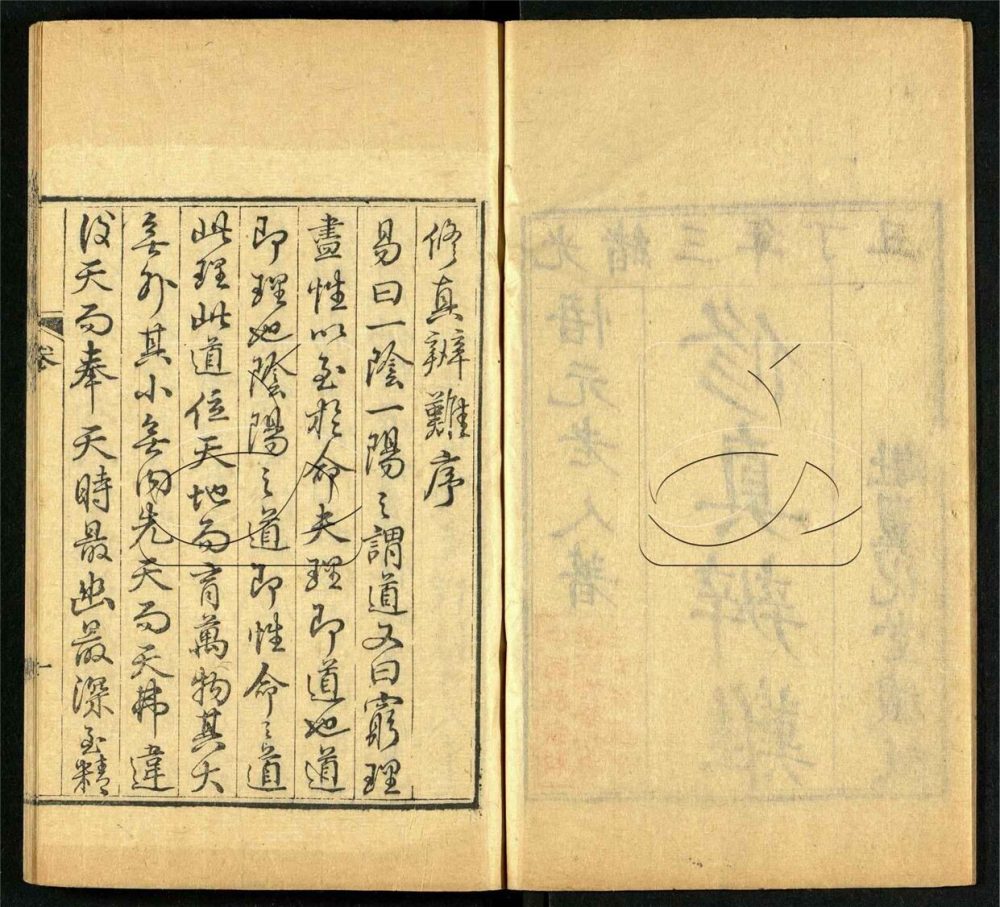 光緒三年丁丑
悟元老人著
修真辨難
修真辨難序
易曰一陰一陽之謂道又曰窮理
盡性以至於命夫理即道也道
即理也陰陽之道即性命之道
此理此道位天地而育萬物其大
無外其小無內先天而天弗違
後天而奉天時最幽最深至精
卷
一